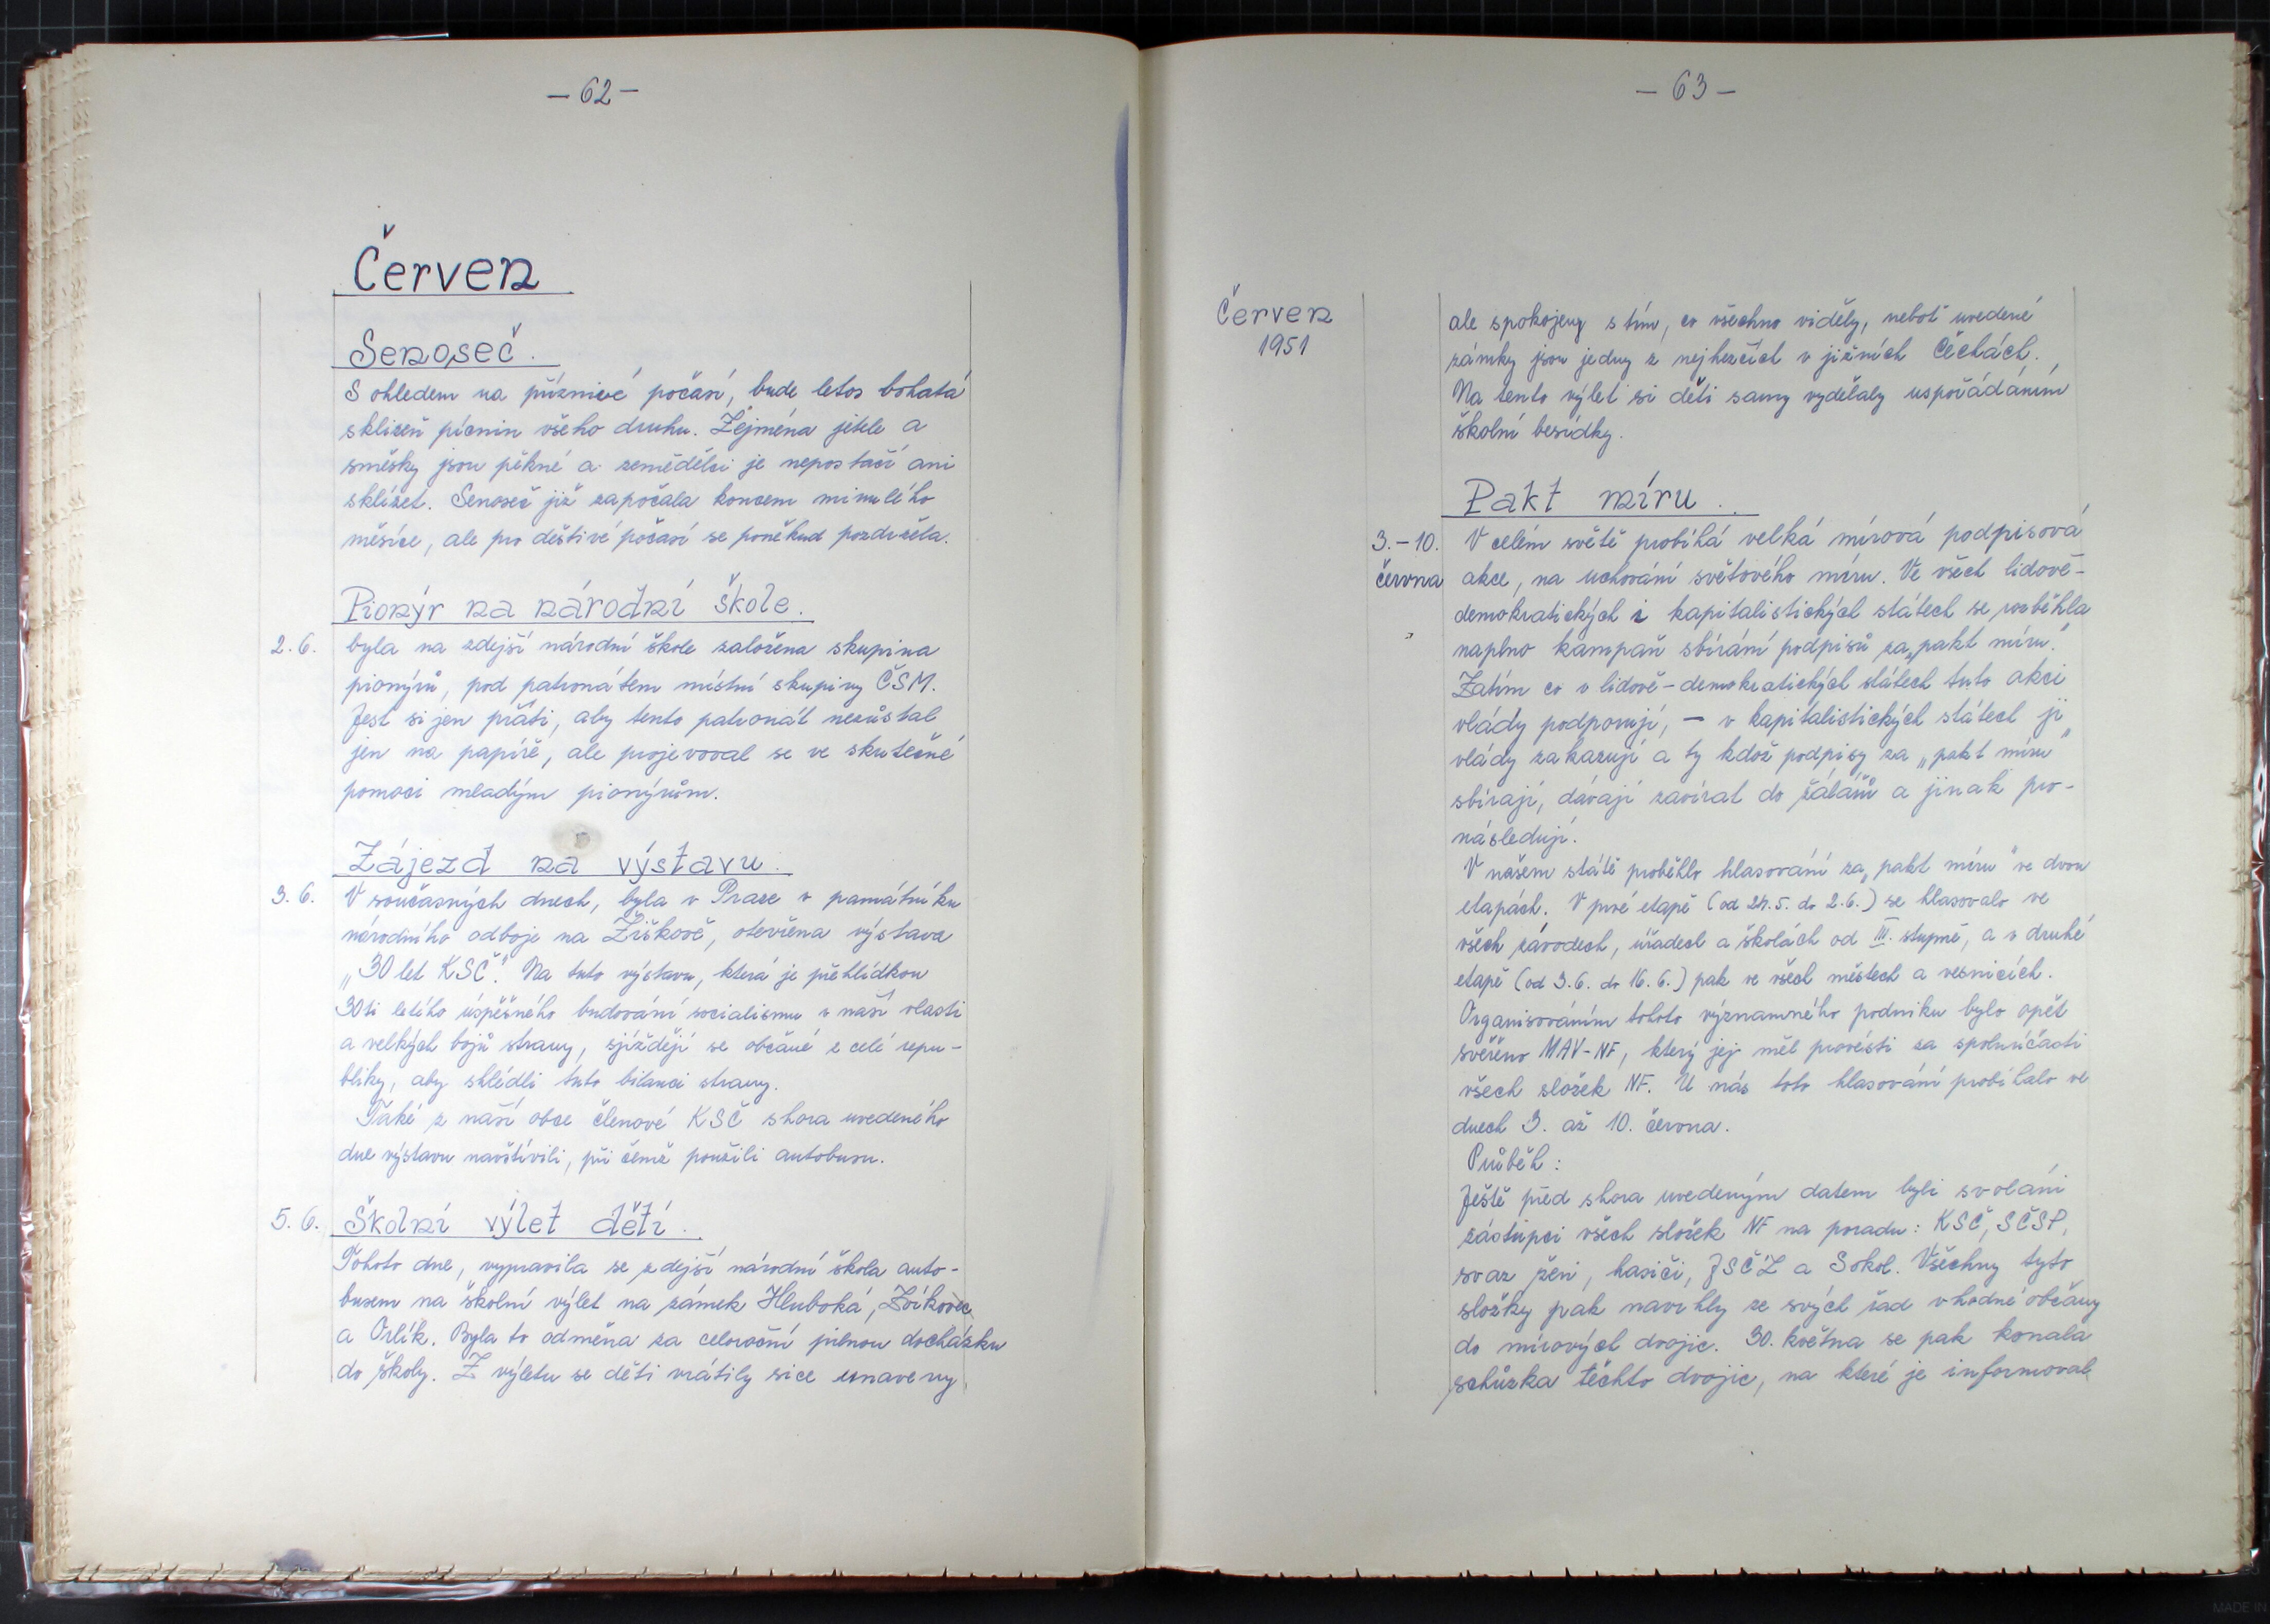 – 62 –
Červen
Senoseč.
S ohledem na příznivé počasí, bude letos bohatá
sklizeň pícnin všeho druhu. Zejména jetele a
směsky jsou pěkné a zemědělci je nepostačí ani
sklízet. Senoseč již započala koncem minulého
měsíce, ale pro deštivé počasí se poněkud pozdržela.
Pionýr na národní škole.
2. 6. byla na zdejší národní škole založena skupina
pionýrů, pod patronátem místní skupiny ČSM.
Jest si jen přáti, aby tento patronát nezůstal
jen na papíře, ale projevoval se ve skutečné
pomoci mladým pionýrům.
Zájezd na výstavu.
3. 6. V současných dnech, byla v Praze v památníku
národního odboje na Žižkově, otevřena výstava
„30 let KSČ." Na tuto výstavu, která je přehlídkou
30ti letého úspěšného budování socialismu v naší vlasti
a velkých bojů strany, sjíždějí se občané z celé repu-
bliky, aby shlédli tuto bilanci strany.
Také z naší obce členové KSČ shora uvedeného
dne výstavu navštívili, při čemž použili autobusu.
5. 6. Školní výlet dětí.
Tohoto dne, vypravila se zdejší národní škola auto-
busem na školní výlet na zámek Hluboká, Zvíkovec
a Orlík. Byla to odměna za celoroční pilnou docházku
do školy. Z výletu se děti vrátily sice unaveny
– 63 –
Červen
1951
ale spokojeny s tím, co všechno viděly, neboť uvedené
zámky jsou jedny z nejhezčích v jižních Čechách.
Na tento výlet si děti samy vydělaly uspořádáním
školní besídky.
Pakt míru.
3. – 10. V celém světě probíhá velká mírová podpisová
června akce, na uchování světového míru. Ve všech lidově-
demokratických i kapitalistických státech se rozběhla
naplno kampaň sbírání podpisů za „pakt míru."
Zatím co v lidově-demokratických státech tuto akci
vlády podporují, – v kapitalistických státech ji
vlády zakazují a ty kdož podpisy za „pakt míru"
sbírají, dávají zavírat do žalářů a jinak pro-
následují.
V našem státě proběhlo hlasování za „pakt míru" ve dvou
etapách. V prvé etapě (od 27. 5. do 2. 6.) se hlasovalo ve
všech závodech, úřadech a školách od III. stupně, a v druhé
etapě (od 3. 6. do 16. 6.) pak ve všech městech a vesnicích.
Organisováním tohoto významného podniku bylo opět
svěřeno MAV-NF, který jej měl provésti za spoluúčasti
všech složek NF. U nás toto hlasování probíhalo ve
dnech 3. až 10. června.
Průběh:
Ještě před shora uvedeným datem byli svoláni
zástupci všech složek NF na poradu: KSČ, SČSP,
svaz žen, hasiči, JSČZ a Sokol. Všechny tyto
složky pak navrhly ze svých řad vhodné občany
do mírových dvojic. 30. května se pak konala
schůzka těchto dvojic, na které je informoval